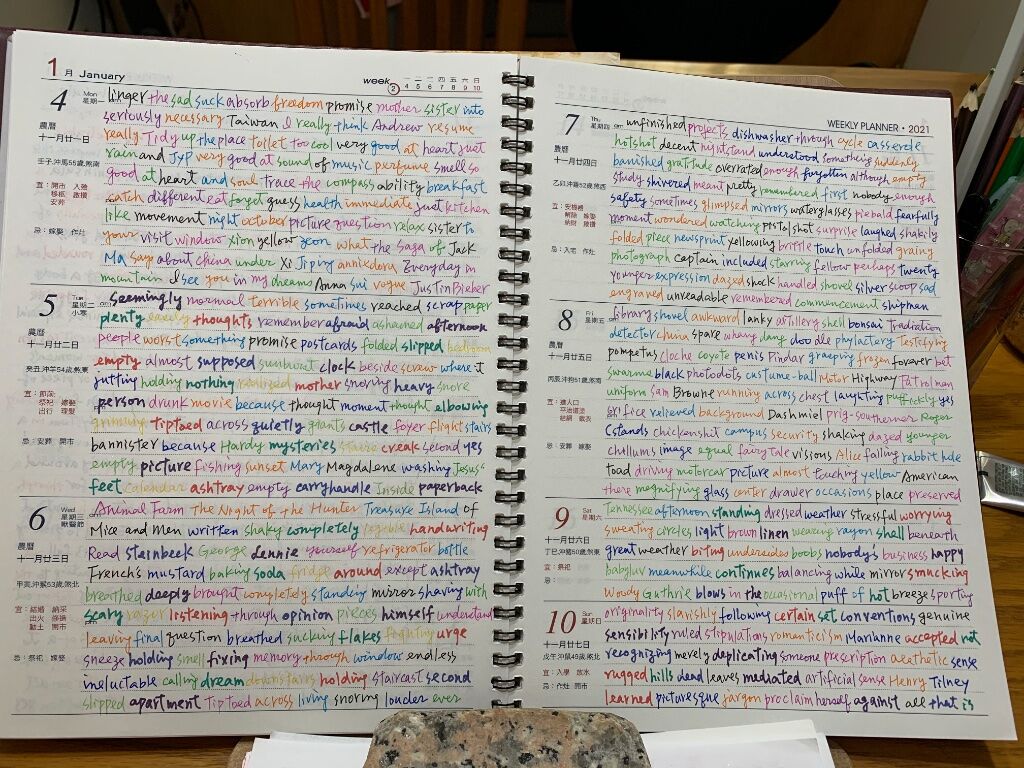 1月 January week 2 一 二 三 四 五 六 日
4 5 6 7 8 9 10
4 Mon 星期一
農曆
十一月廿一日
壬子,沖馬55歲,煞南
宜：開市 入殮
移柩 啟攢
安葬
忌：嫁娶 作灶
linger the sad suck absorb freedom promise mother sister into
seriously necessary Taiwan I really think Andrew resume
really Tidy up the place toilet too cool very good at heart just
rain and Typ very good at sound of music perfume smell so
good at heart and soul trace the compass ability breakfast
catch different eat forget guess health immediate just kitchen
like movement night october picture question relax sister to
your visit window xion yellow zeon what the Saga of Jack
Ma says about china under Xi Jiping Everyday in
mountain I see you in my dreams Anna sui vogue Justin Bieber
5 Tue 星期二
小寒
農曆
十一月廿二日
癸丑,沖羊54歲,煞東
宜：
祭祀 嫁娶
出行 理髮
忌：安葬 開市
seemingly normal terrible sometimes reached scrap paper
plenty early thoughts remember afraid ashamed afternoon
people worst something promise postcards folded slipped bedroom
empty almost supposed sunburst clock beside screw where it
jutting holding nothing realized mother snoring heavy snore
person drunk movie because thought moment thought elbowing
grinning tiptoed across quietly giants castle foyer flight stairs
bannister because Hardy mysteries stairs creak second yes
empty picture fishing sunset Mary Magdalene washing Jesus'
feet calendar ashtray empty carryhandle Inside paperback
6 Wed 星期三
獸醫節
農曆
十一月廿三日
甲寅,沖猴53歲,煞北
宜：結婚 納采
出火
動土 開市
忌：祭祀 嫁娶
Animal Farm The Night of the Hunter Treasure Island of
Mice and Men written shaky completely legible handwriting
Read stainbeck George Lennie yourself refrigerator bottle
French's mustard baking soda fridge around except ashtray
breathed deeply brought completely standing mirror shaving with
scary razor listening through opinion pieces himself understand
leaving final question breathed sucking flakes fighting urge
sneeze holding smell fixing memory through window endless
ineluctable calling dream downstairs holding staircast second
slipped apartment Tiptoed across living snoring louder ever
WEEKLY PLANNER • 2021
7 Thu 星期四
農曆
十一月廿四日
乙卯,沖雞52歲,煞西
宜：安機械
解除 嫁娶
納財
忌：入宅 作灶
unfinished projects dishwasher through cycle casserole
holshot decent nightstand understood something suddenly
banished gratitude overrated enough forgotten although empty
study shivered meant pretty remembered first nobody enough
safety sometimes glimpsed mirrors waterglasses piebald fearfully
moment wondered watching pistol shot surprise laughed shakily
folded piece newsprint yellowing brittle touch unfolded grainy
photograph captain included starring fellow perhaps twenty
younger expression dazed shock handled shovel silver scoop sad
engraved unreadable remembered commencement shipman
8 Fri 星期五
農曆
十一月廿五日
丙辰,沖狗51歲,煞南
宜：進人口
平治道塗
結網
忌：安葬 嫁娶
library shovel awkward lanky artillery shell bonsai Tradiation
detector china spare whang dang doodle phylactery Testifying
pompetus cloche coyote penis Pindar graeping frozen forever bat
swarms black photodots custume-ball Motor Highway Patrolman
uniform Sam Browne running across chest laughing puffickly yes
orifice relieved background Dashmiel prig-southerner Roger
Cstands chickenshit campus security shaking dazed younger
chillums image equal fairytale visions Alice falling rabbit hole
toad driving motorcar picture almost touching yellow American
there magnifying glass center drawer occasions place preserved
9 Sat 星期六
十一月廿六日
丁巳,沖豬50歲,煞東
宜：祭祀
忌：
Tennessee afternoon standing dressed weather stressful worrying
sweating circles light brown linen wearing rayon shell beneath
great weather biting undersides boobs nobody's business happy
babyluv meanwhile continues balancing while mirror smucking
Woody Guthrie blows in the occasional puff of hot breeze sporting
10 Sun 星期日
十一月廿七日
戊午,沖鼠49歲,煞北
宜：入學 放水
忌：作灶 開市
originality slavishly following certain set conventions genuine
sensibility ruled stipulations romanticism Marianne accepted not
recognizing merely duplicating someone prescription aesthetic sense
rugged hills dead leaves mediated artificial sense Henry Tilney
learned picturesque jargon proclaim herself against all that is